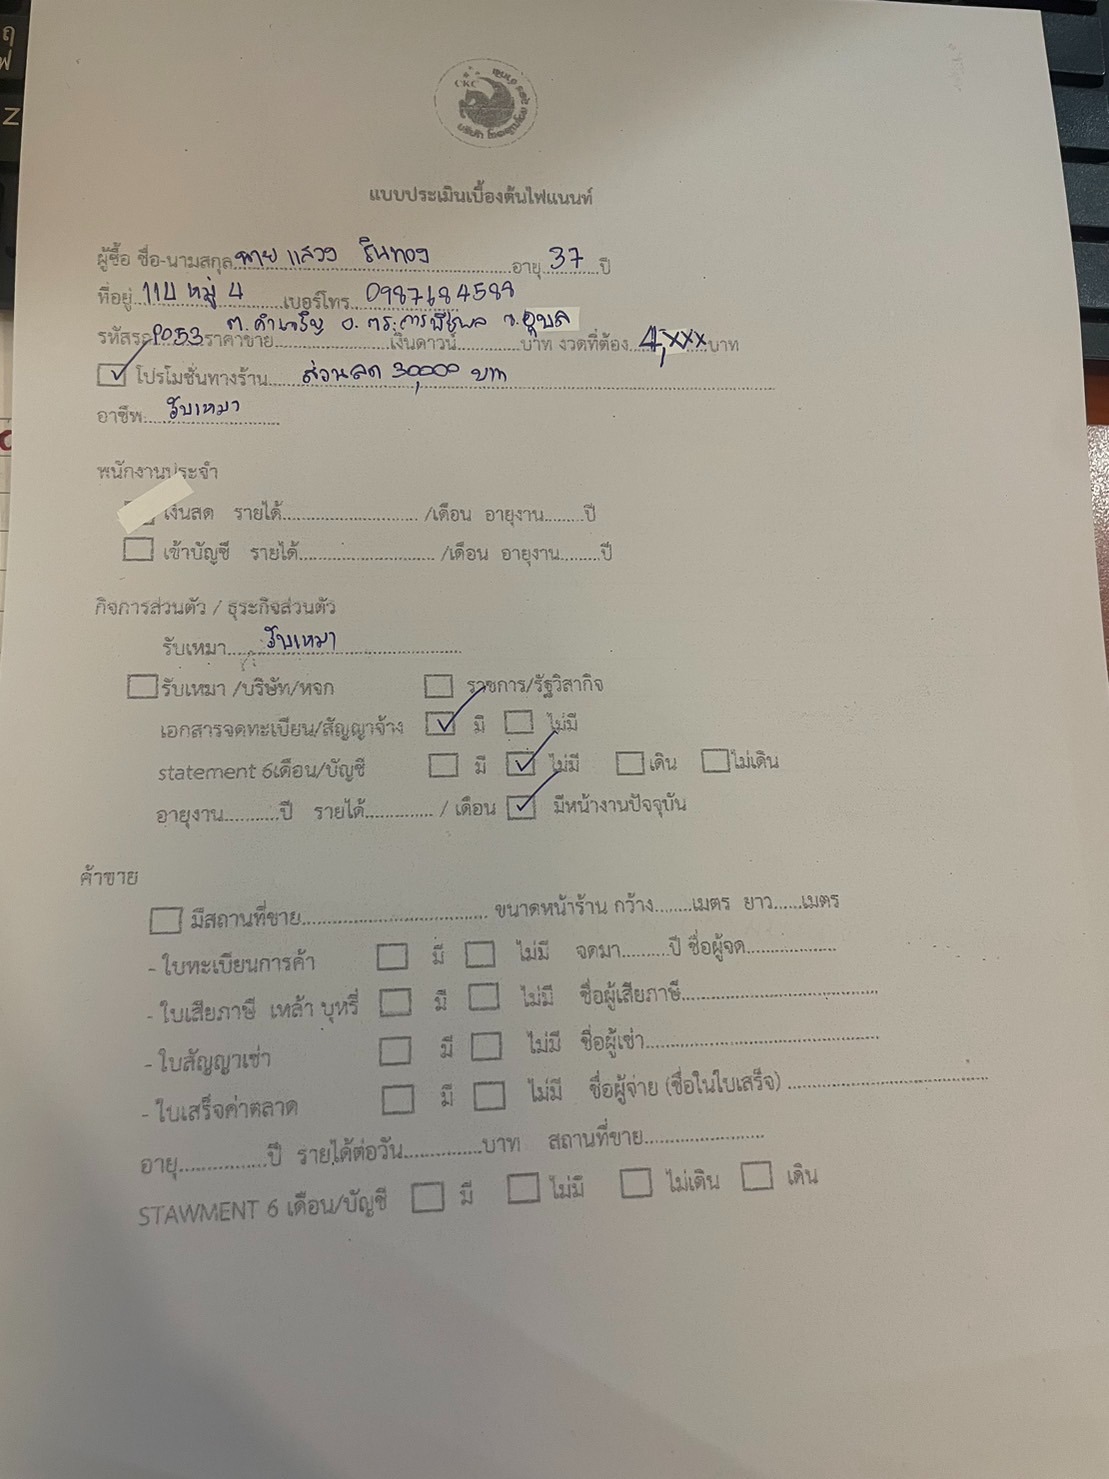 CKC
แบบประเมินเบื้องต้นไฟแนนท์
ผู้ซื้อ ชื่อ-นามสกุล นาย แสวง อินทอง อายุ 37 ปี
ที่อยู่ 114 หมู่ 4 เบอร์โทร 0987684588
ต.คำเจริญ อ.ตระการพืชผล จ.อุบล
รหัสรถ P053 ราคาขาย เงินดาวน์ บาท งวดที่ต้อง 4,xxx บาท
โปรโมชั่นทางร้าน ส่วนลด 30,000 บาท
อาชีพ รับเหมา
พนักงานประจำ
เงินสด รายได้ /เดือน อายุงาน ปี
เข้าบัญชี รายได้ /เดือน อายุงาน ปี
กิจการส่วนตัว / ธุระกิจส่วนตัว
รับเหมา รับเหมา
รับเหมา /บริษัท/หจก ราชการ/รัฐวิสากิจ
เอกสารจดทะเบียน/สัญญาจ้าง มี ไม่มี
statement 6เดือน/บัญชี มี ไม่มี เดิน ไม่เดิน
อายุงาน ปี รายได้ / เดือน มีหน้างานปัจจุบัน
ค้าขาย
มีสถานที่ขาย ขนาดหน้าร้าน กว้าง เมตร ยาว เมตร
- ใบทะเบียนการค้า มี ไม่มี จดมา ปี ชื่อผู้จด
- ใบเสียภาษี เหล้า บุหรี่ มี ไม่มี ชื่อผู้เสียภาษี
- ใบสัญญาเช่า มี ไม่มี ชื่อผู้เช่า
- ใบเสร็จค่าตลาด มี ไม่มี ชื่อผู้จ่าย (ชื่อในใบเสร็จ)
อายุ ปี รายได้ต่อวัน บาท สถานที่ขาย
STAWMENT 6 เดือน/บัญชี มี ไม่มี ไม่เดิน เดิน